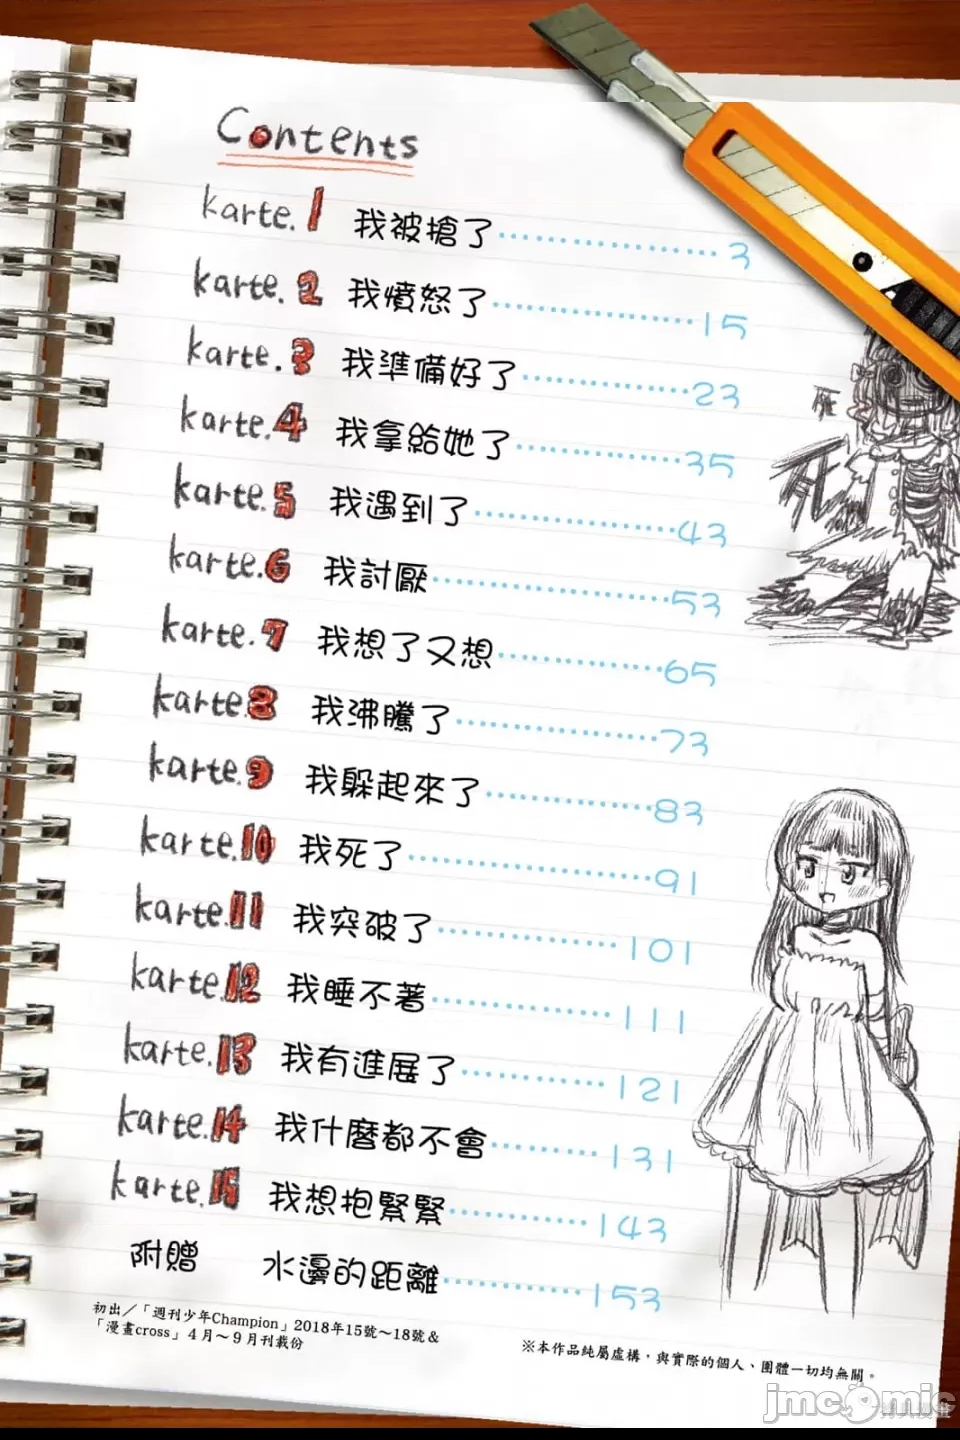 Contents
karte.1 我被搶了 3
karte.2 我憤怒了 15
karte.3 我準備好了 23
karte.4 我拿給她了 35
karte.5 我遇到了 43
karte.6 我討厭 53
karte.7 我想了又想 65
karte.8 我沸騰了 73
karte.9 我躲起來了 83
karte.10 我死了 91
karte.11 我突破了 101
karte.12 我睡不著 111
karte.13 我有進展了 121
karte.14 我什麼都不會 131
karte.15 我想抱緊緊 143
附贈 水邊的距離 153
初出/「週刊少年Champion」2018年15號~18號&
「漫畫cross」4月~9月刊載份
※本作品純屬虛構,與實際的個人、團體一切均無關。
jmcomic